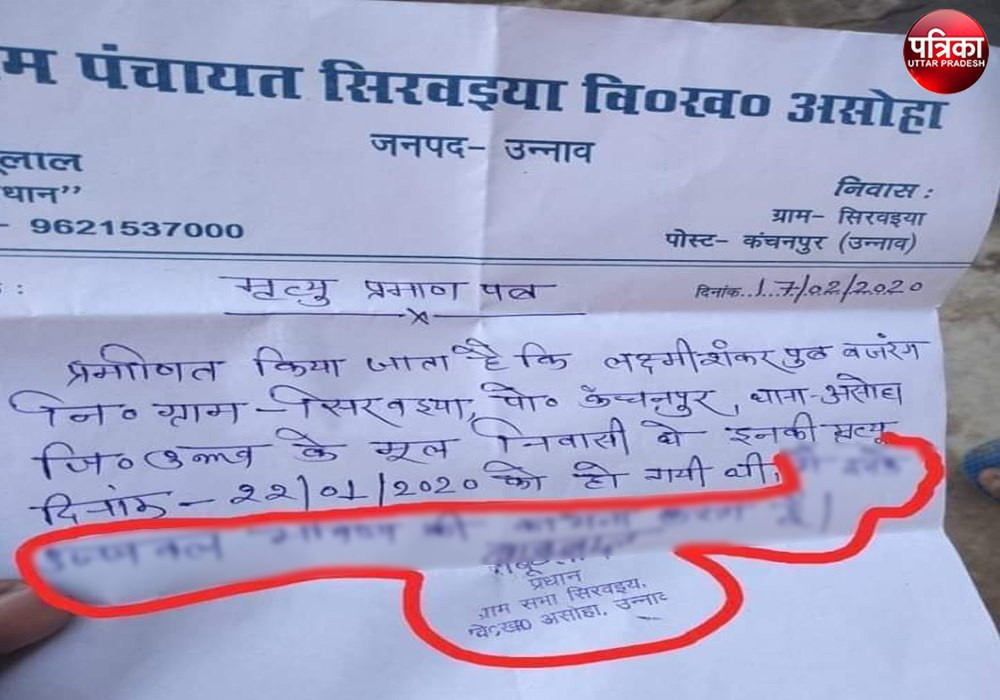 पत्रिका
UTTAR PRADESH
म पंचायत सिरवइया वि०ख० असोहा
जनपद- उन्नाव
ूलाल
धान”
- 9621537000
निवास :
ग्राम- सिरवइया
पोस्ट- कंचनपुर (उन्नाव)
मृत्यु प्रमाण पत्र
दिनांक...17/02/2020
प्रमाणित किया जाता है कि लक्ष्मीशंकर पुत्र बजरंग
नि० ग्राम - सिरवइया, पो० कंचनपुर, थाना-असोहा
जि० उन्नाव के मूल निवासी थे इनकी मृत्यु
दिनांक - 22/01/2020 को हो गयी थी।
की कामना करता
प्रधान
ग्राम सभा सिरवइय.
वि०ख० असोहा, उन्नाव